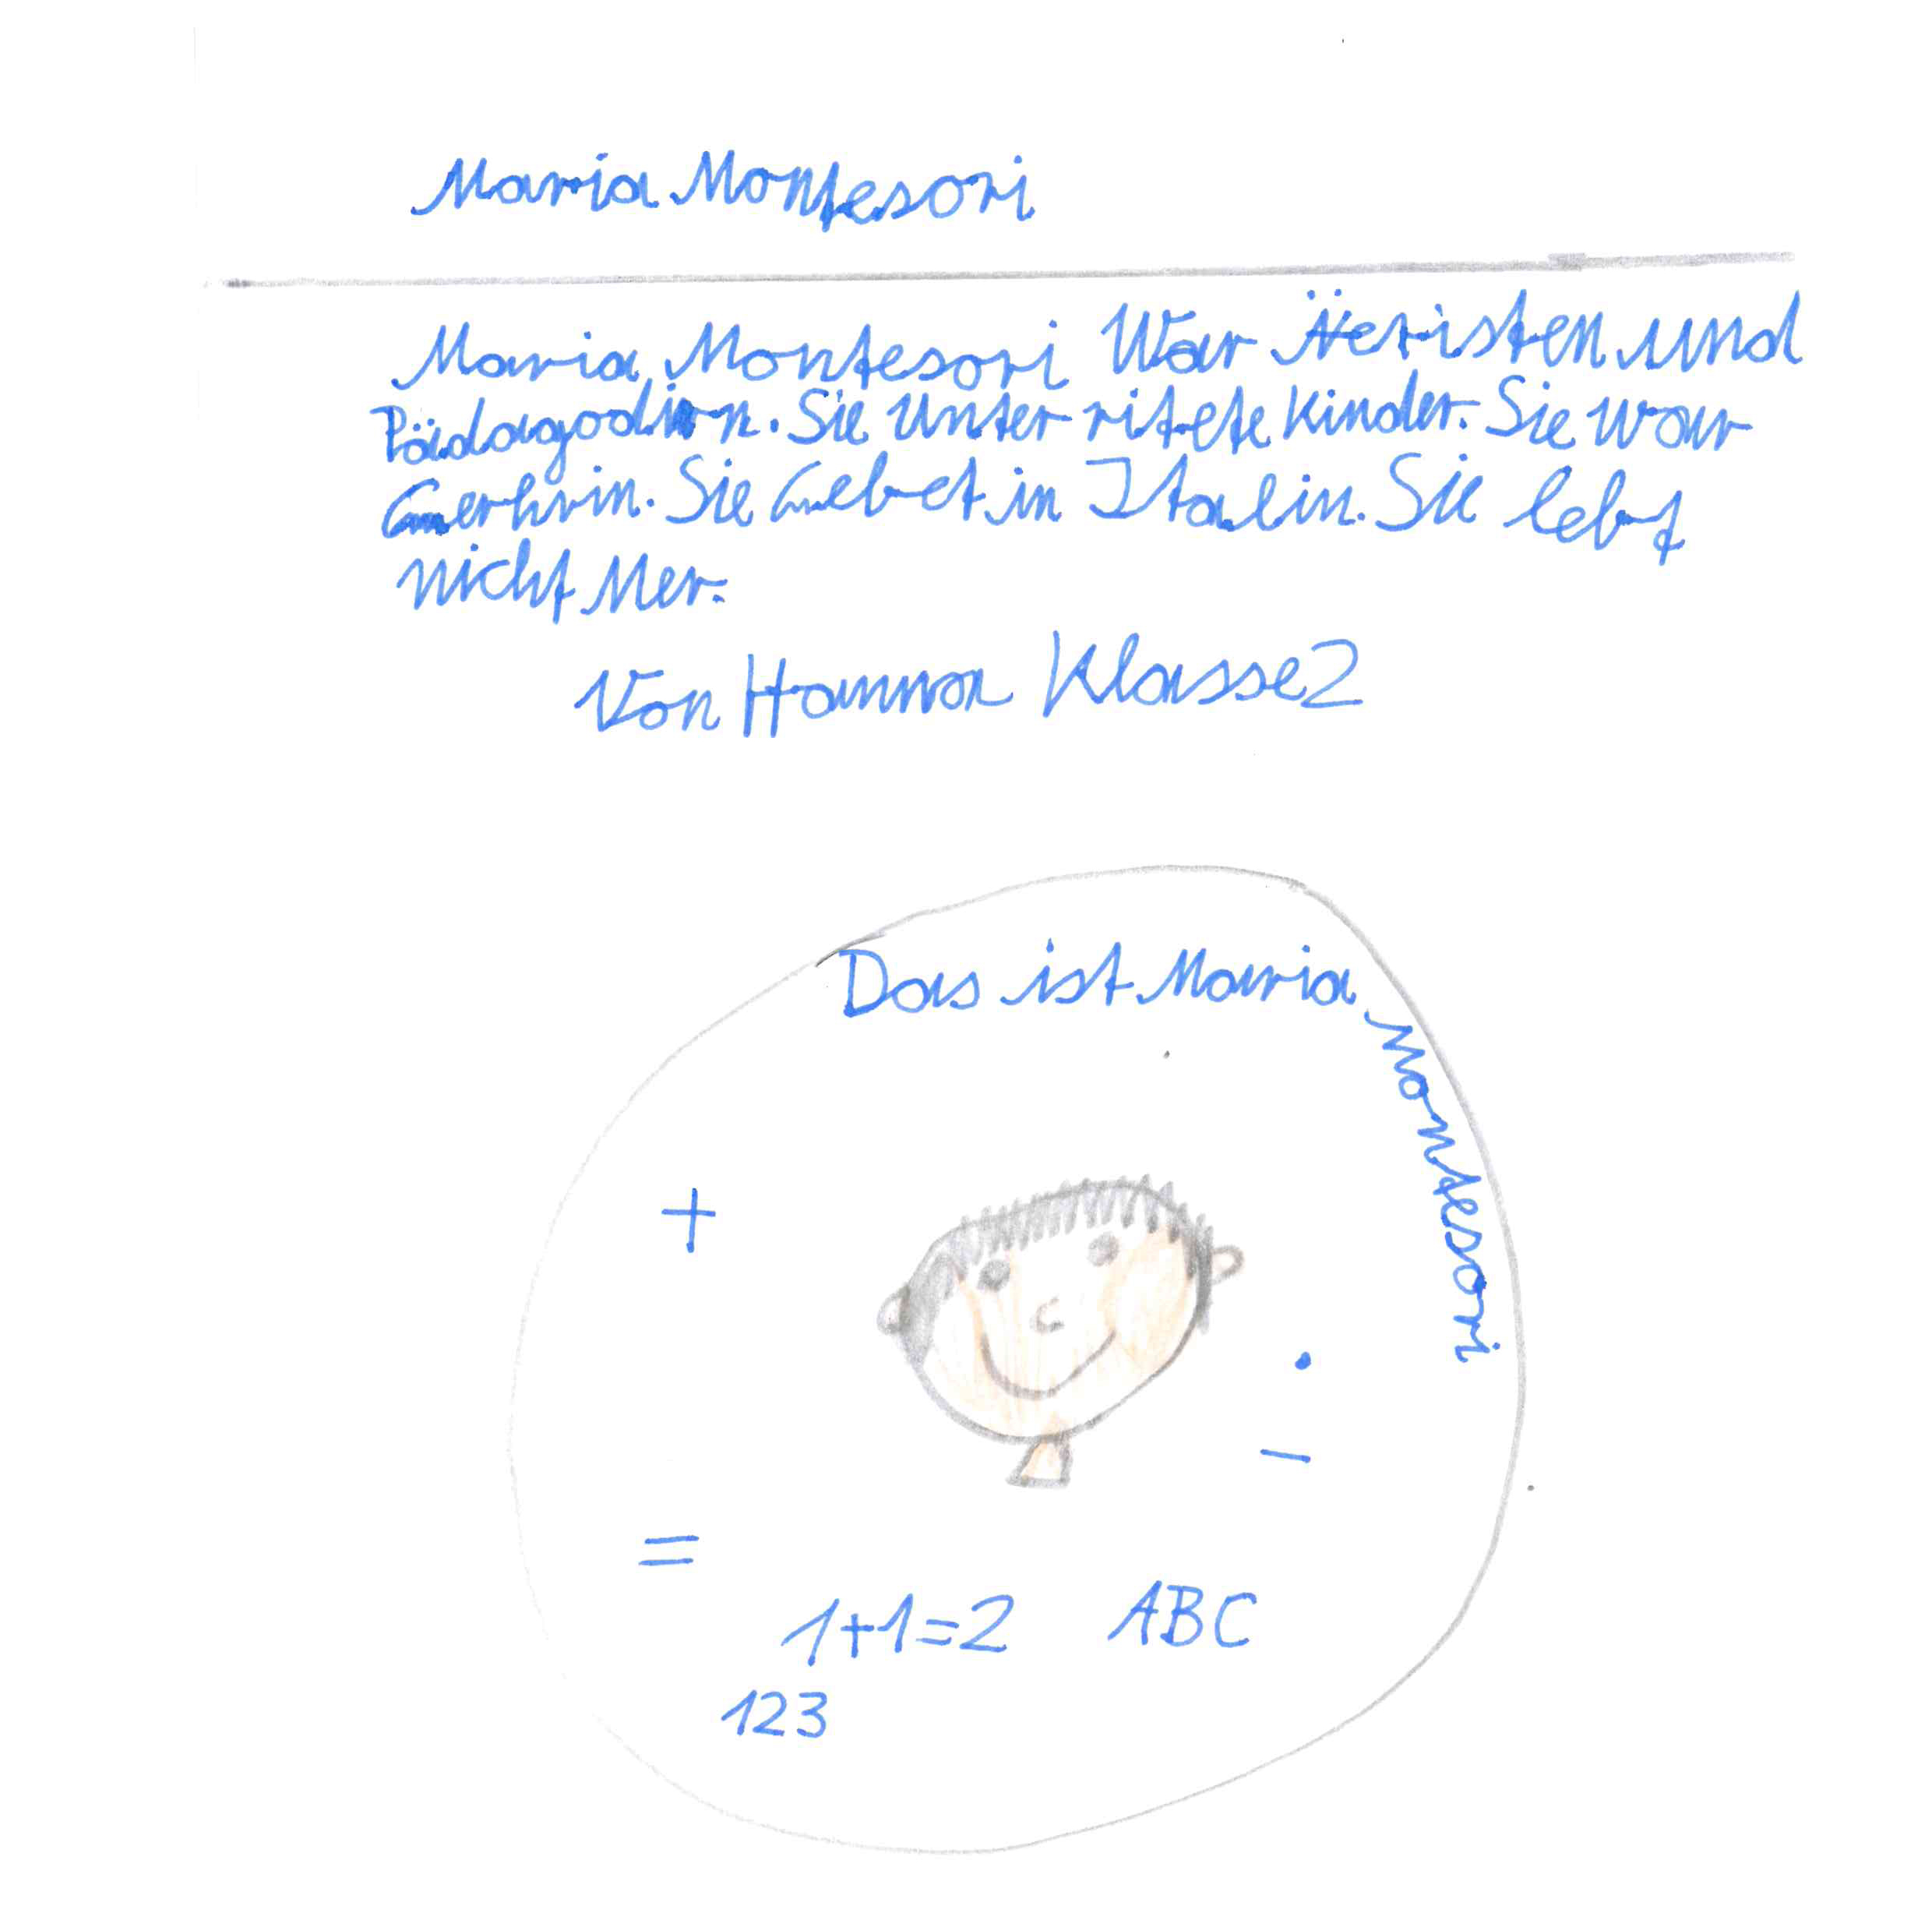 Maria Montesori
Maria Montesori War Äetisten und
Pädagodin. Sie Unter ritete Kinder. Sie war
erhrin. Sie Lebet in Italin. Sie lebt
nicht Mer.
Von Hanna Klasse2
Das ist Maria Montesori
+
·
-
=
1+1=2 ABC
123